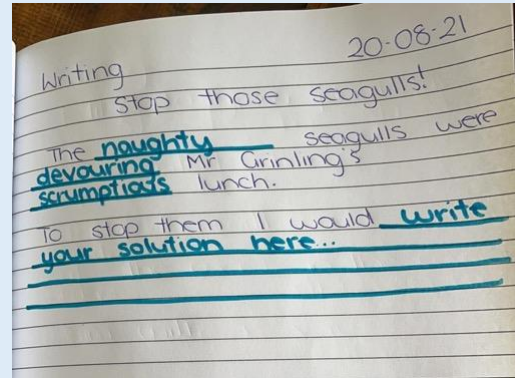 20-08-21
Writing
Stop those seagulls!
The naughty seagulls were
devouring Mr Grinling's
scrumptious lunch.
To stop them I would write
your solution here...